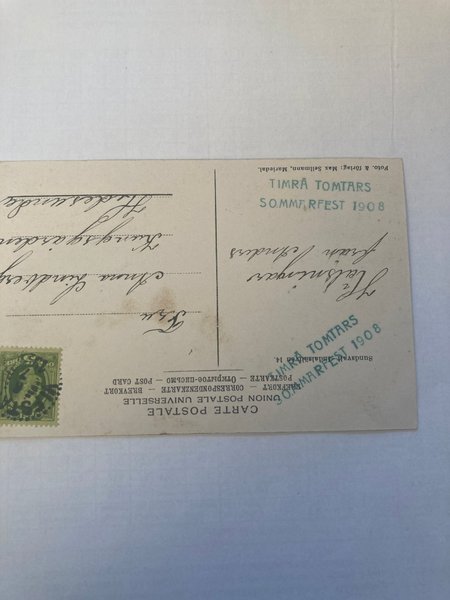 CARTE POSTALE
UNION POSTALE UNIVERSELLE
BREFKORT — CORRESPONDENZKARTE — BREVKORT
POSTKARTE — Открытое-письмо — POST CARD
Sundsvall
14
TIMRÅ TOMTARS
SOMMARFEST 1908
Helsningar
från Anders
TIMRÅ TOMTARS
SOMMARFEST 1908
Foto. & förlag: Max Sellmann, Mariedal.
Fru
Anna Lindberg
Kungsgården